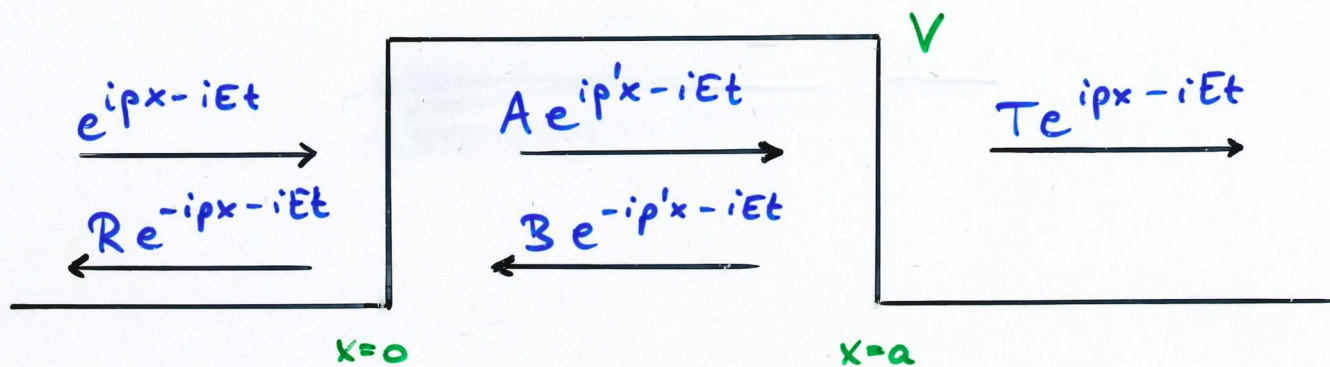 V
e^{ipx-iEt} A e^{ip'x-iEt} T e^{ipx-iEt}
R e^{-ipx-iEt} B e^{-ip'x-iEt}
x=0 x=a